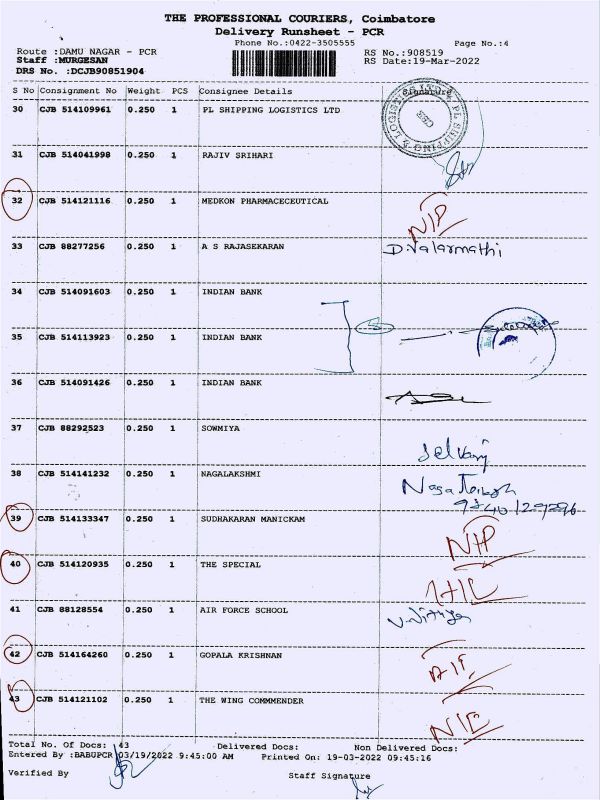 THE PROFESSIONAL COURIERS, Coimbatore
Delivery Runsheet - PCR
Phone No.:0422-3505555 Page No.:4
Route :DAMU NAGAR - PCR RS No.:908519
Staff :MURGESAN RS Date:19-Mar-2022
DRS No. :DCJB90851904
S No Consignment No Weight PCS Consignee Details Signature
30 CJB 514109961 0.250 1 PL SHIPPING LOGISTICS LTD
PL SHIPPING & LOGISTICS
31 CJB 514041998 0.250 1 RAJIV SRIHARI
32 CJB 514121116 0.250 1 MEDKON PHARMACECEUTICAL
33 CJB 88277256 0.250 1 A S RAJASEKARAN D.Valarmathi
34 CJB 514091603 0.250 1 INDIAN BANK
35 CJB 514113923 0.250 1 INDIAN BANK
36 CJB 514091426 0.250 1 INDIAN BANK
37 CJB 88292523 0.250 1 SOWMIYA
38 CJB 514141232 0.250 1 NAGALAKSHMI
39 CJB 514133347 0.250 1 SUDHAKARAN MANICKAM
40 CJB 514120935 0.250 1 THE SPECIAL
41 CJB 88128554 0.250 1 AIR FORCE SCHOOL
42 CJB 514164260 0.250 1 GOPALA KRISHNAN
43 CJB 514121102 0.250 1 THE WING COMMMENDER
Total No. Of Docs: 43 Delivered Docs: Non Delivered Docs:
Entered By :BABUPCR 03/19/2022 9:45:00 AM Printed On: 19-03-2022 09:45:16
Verified By Staff Signature